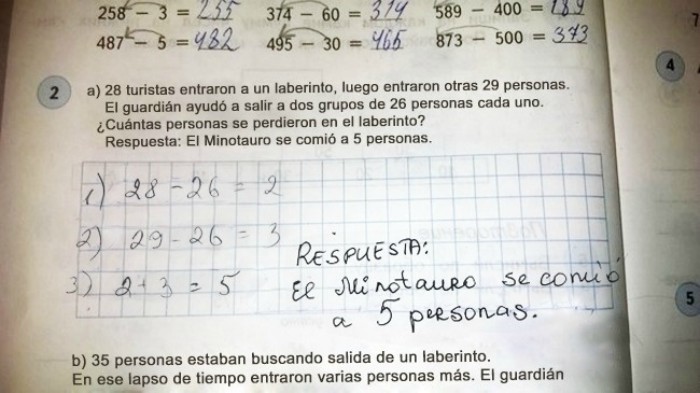 258 - 3 = 255 374 - 60 = 314 589 - 400 = 189
487 - 5 = 482 495 - 30 = 465 873 - 500 = 373
4
2 a) 28 turistas entraron a un laberinto, luego entraron otras 29 personas.
El guardián ayudó a salir a dos grupos de 26 personas cada uno.
¿Cuántas personas se perdieron en el laberinto?
Respuesta: El Minotauro se comió a 5 personas.
1) 28 - 26 = 2
2) 29 - 26 = 3
3) 2 + 3 = 5
RESPUESTA:
El Minotauro se comió
a 5 personas.
5
b) 35 personas estaban buscando salida de un laberinto.
En ese lapso de tiempo entraron varias personas más. El guardián